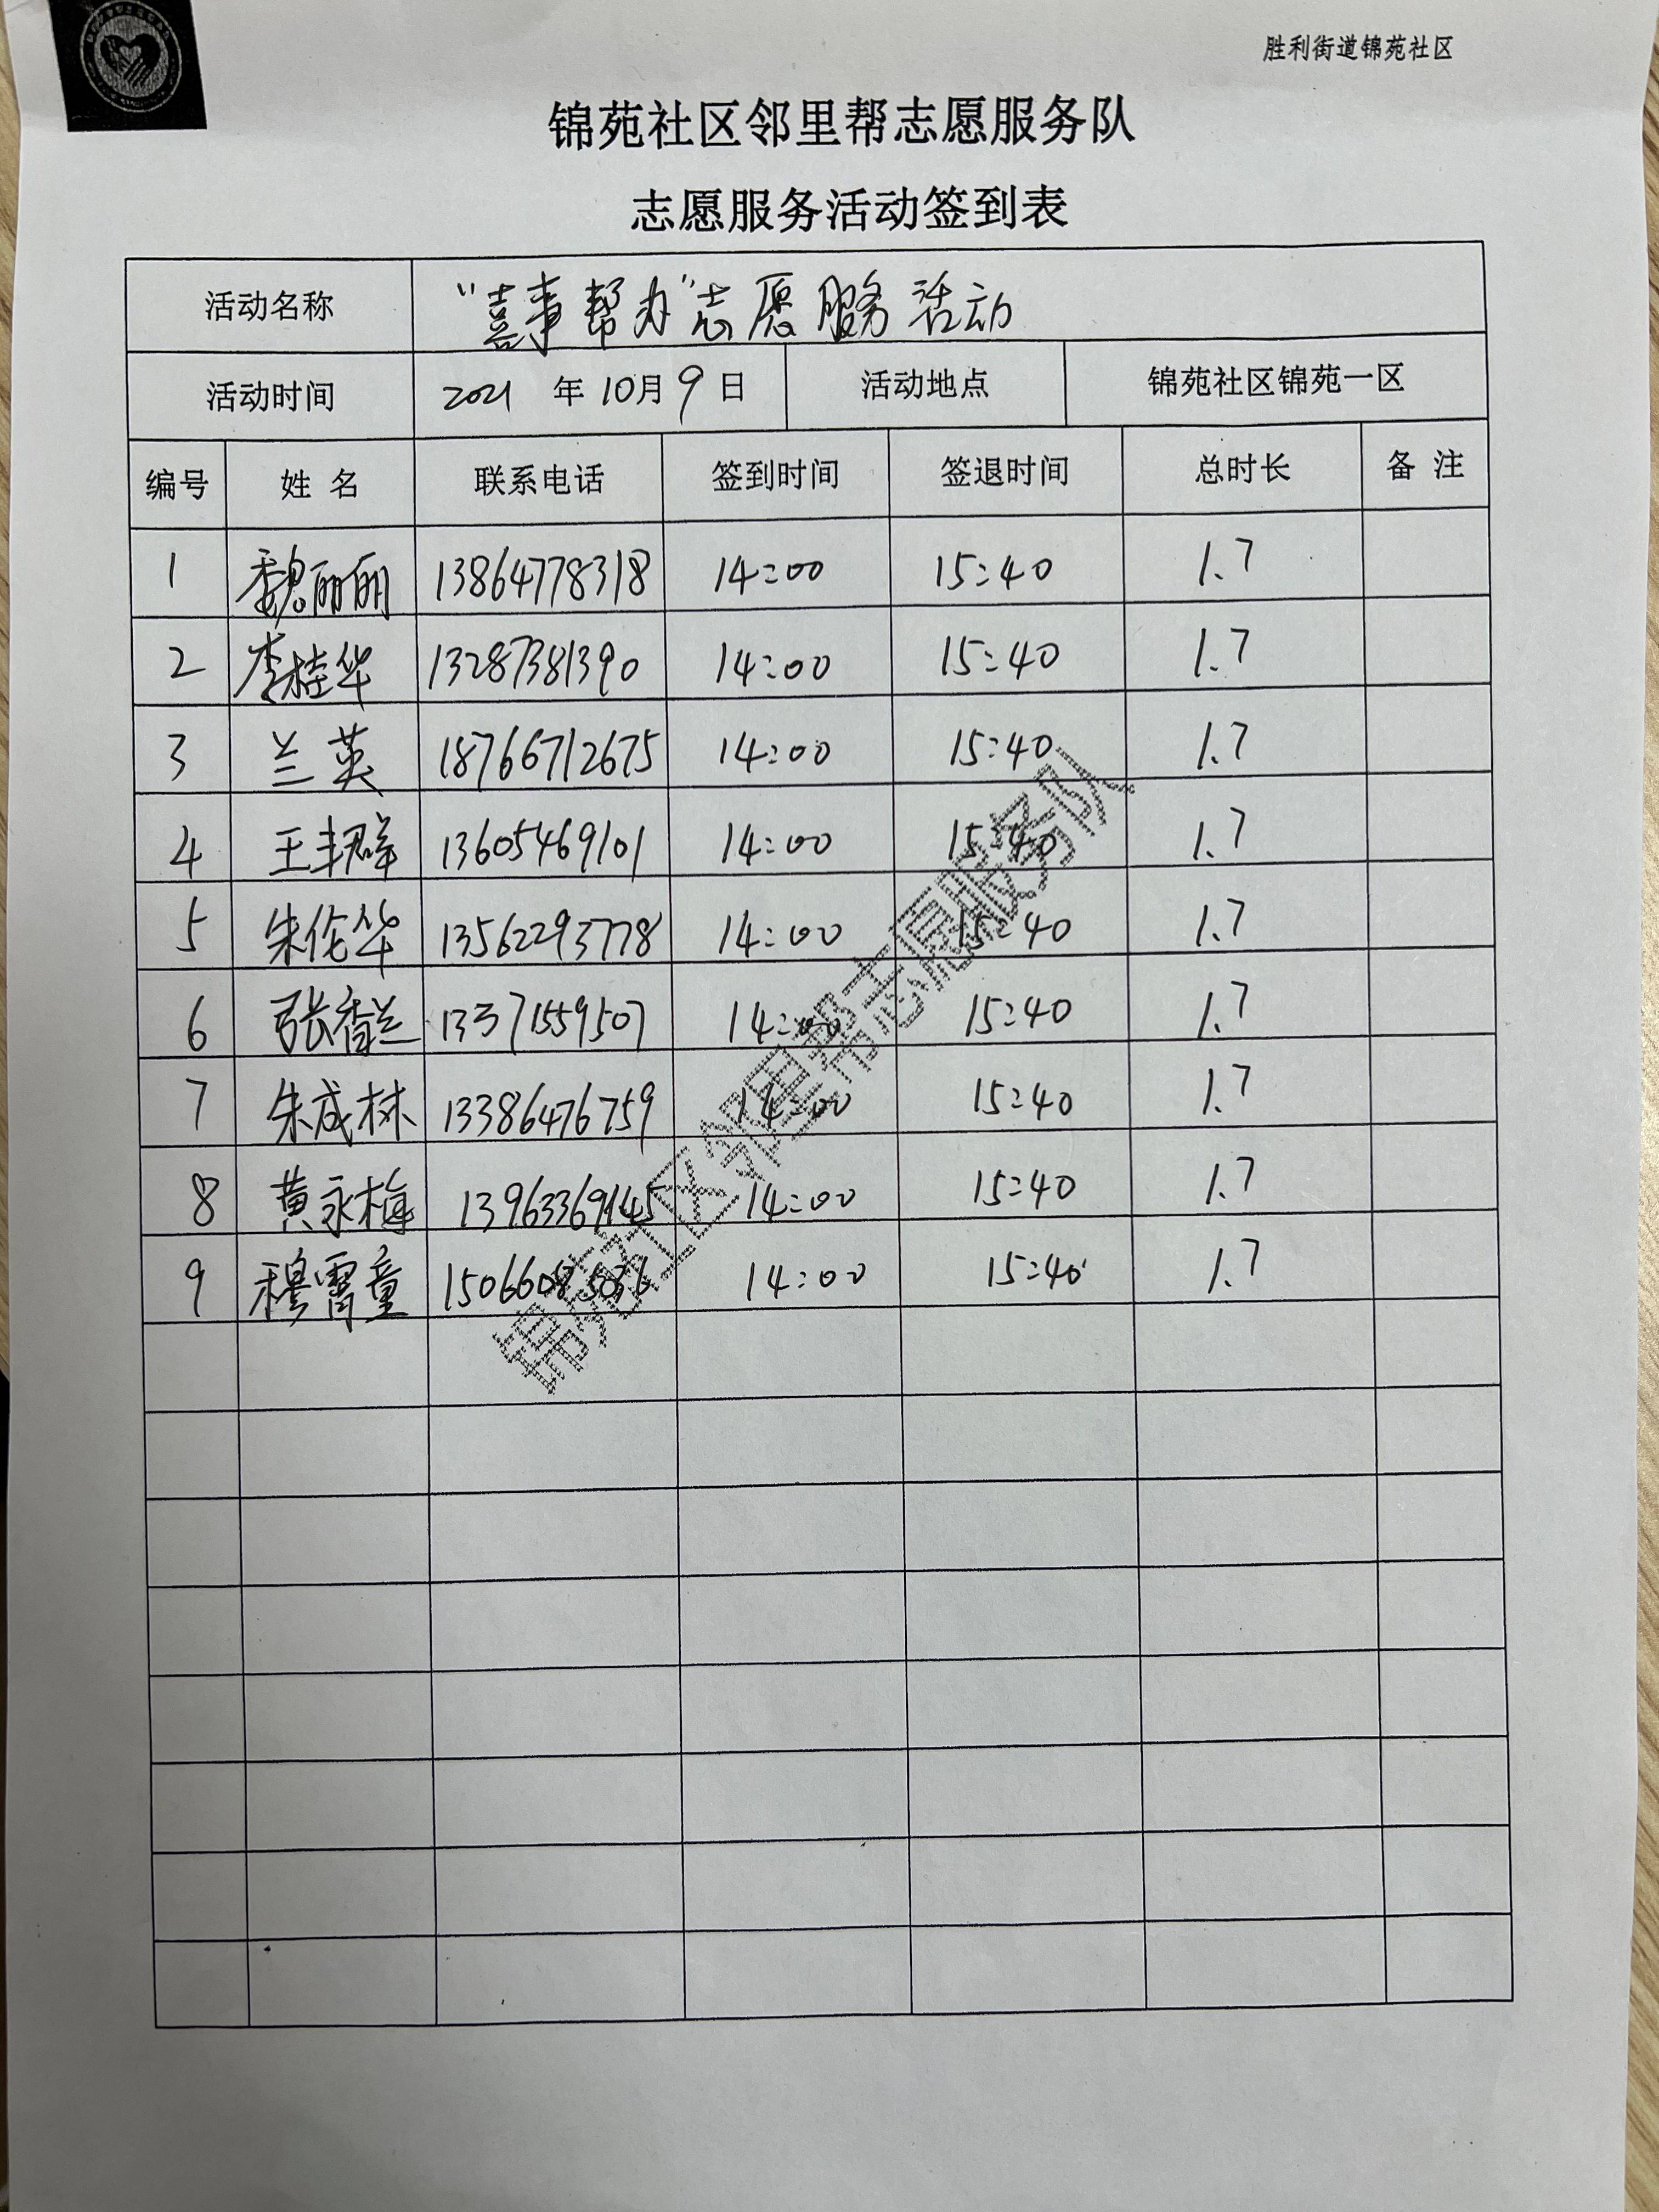 胜利街道锦苑社区
锦苑社区邻里帮志愿服务队
志愿服务活动签到表
活动名称 “喜事帮办”志愿服务活动
活动时间 2021 年 10月 9 日 活动地点 锦苑社区锦苑一区
编号 姓 名 联系电话 签到时间 签退时间 总时长 备 注
1 魏丽丽 13864778318 14:00 15:40 1.7
2 李桂华 13287381390 14:00 15:40 1.7
3 兰英 18766712675 14:00 15:40 1.7
4 王丰群 13605469101 14:00 15:40 1.7
5 朱伦华 13562293778 14:00 15:40 1.7
6 张香兰 13371559507 14:00 15:40 1.7
7 朱成林 13386476759 14:00 15:40 1.7
8 黄永梅 13963369145 14:00 15:40 1.7
9 穆霄童 14:00 15:40 1.7
锦苑社区邻里帮志愿服务队